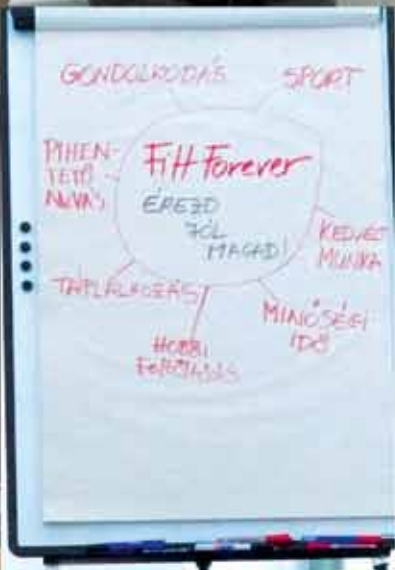 GONDOLKODÁS
SPORT
PIHEN-
TETŐ
ALVÁS
Fitt Forever
ÉREZD
JÓL
MAGAD!
KEDVES
MUNKA
TÁPLÁLKOZÁS
MINŐSÉGI
IDŐ
HOBBI